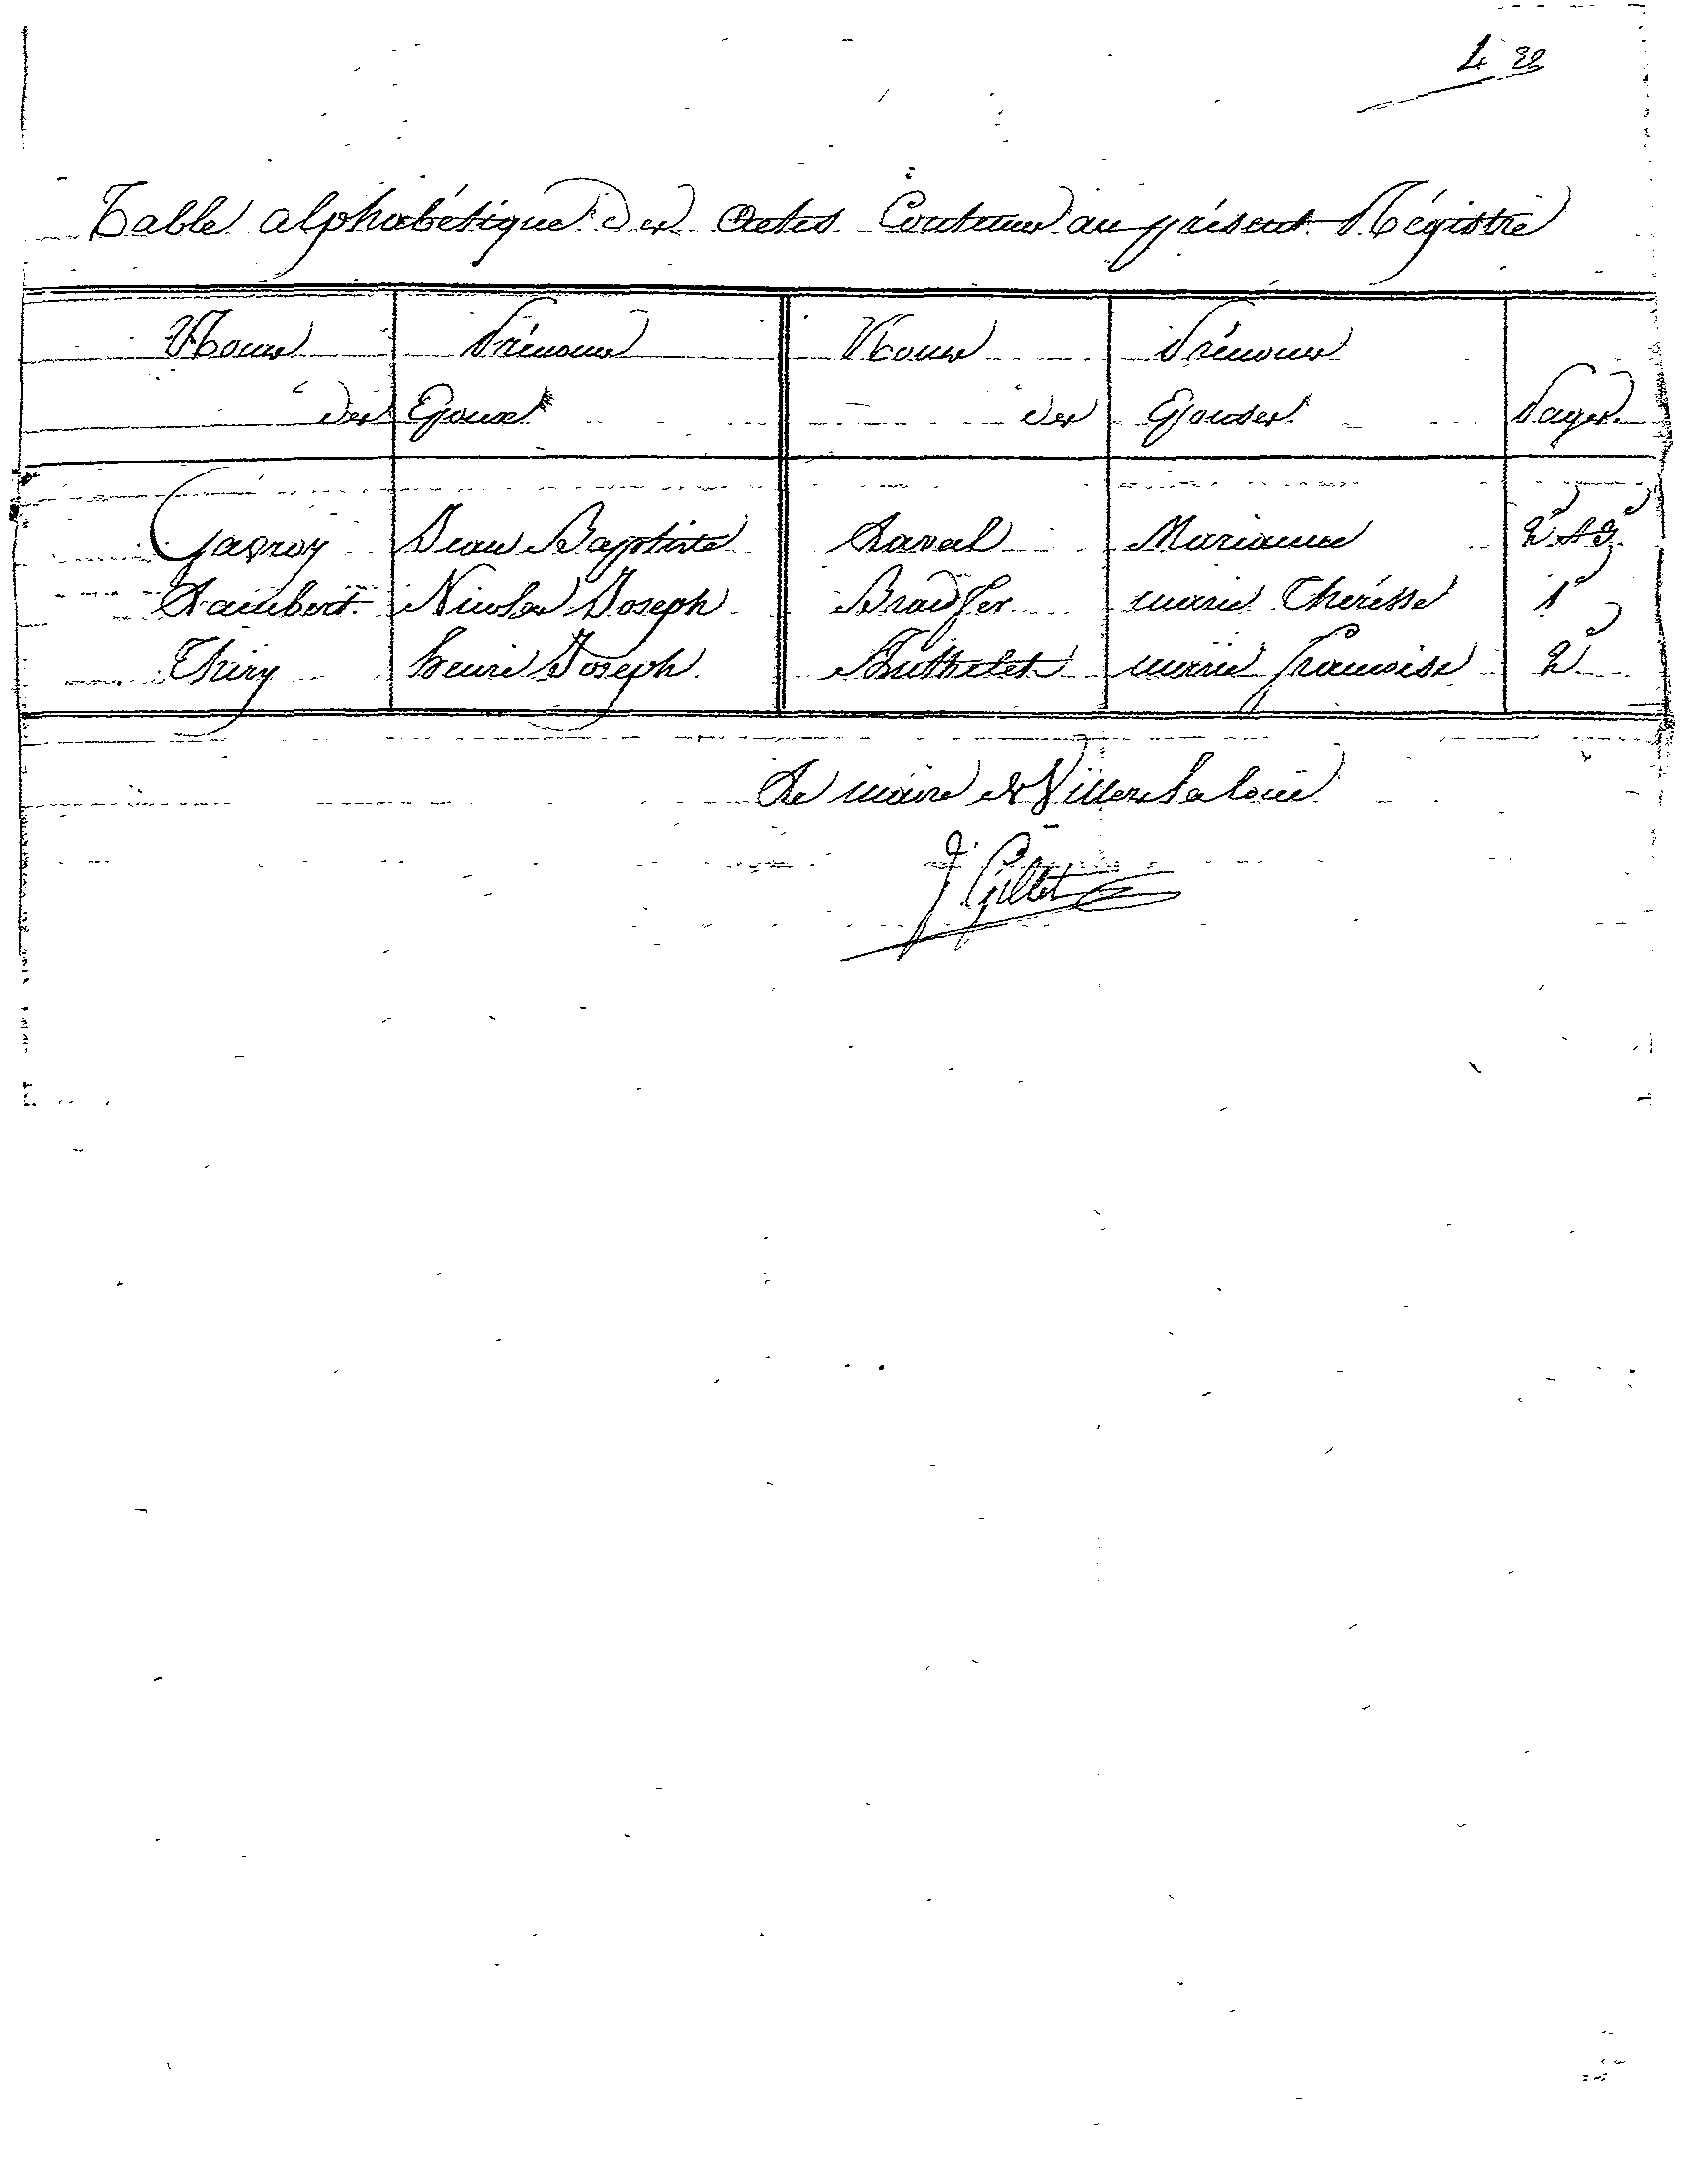 4 28
Table alphabétique des Actes Contenus au présent Régistre
Noms Prénoms Noms Prénoms
des Epoux des Epouses Pages
Gavroy Jean Baptiste Laval Marianne 2 et 3
Lambert Nicolas Joseph Bradfer marie Thérèsse 1
Thiry henri Joseph Bruthelet marie francoise 2
Le maire de Villers la loue
J Gillet